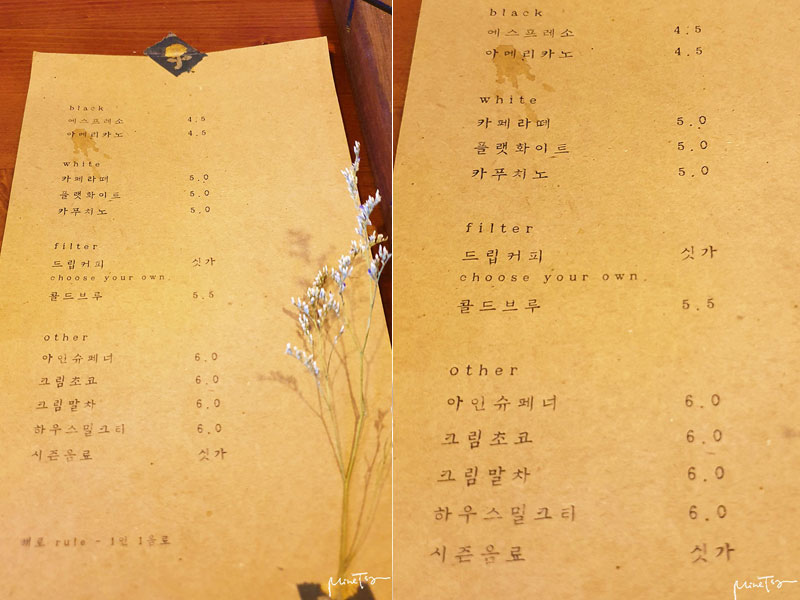 black
에스프레소 4.5
아메리카노 4.5
white
카페라떼 5.0
플랫화이트 5.0
카푸치노 5.0
filter
드립커피 싯가
choose your own.
콜드브루 5.5
other
아인슈페너 6.0
크림초코 6.0
크림말차 6.0
하우스밀크티 6.0
시즌음료 싯가
rule - 1인 1음료
black
에스프레소 4.5
아메리카노 4.5
white
카페라떼 5.0
플랫화이트 5.0
카푸치노 5.0
filter
드립커피 싯가
choose your own.
콜드브루 5.5
other
아인슈페너 6.0
크림초코 6.0
크림말차 6.0
하우스밀크티 6.0
시즌음료 싯가